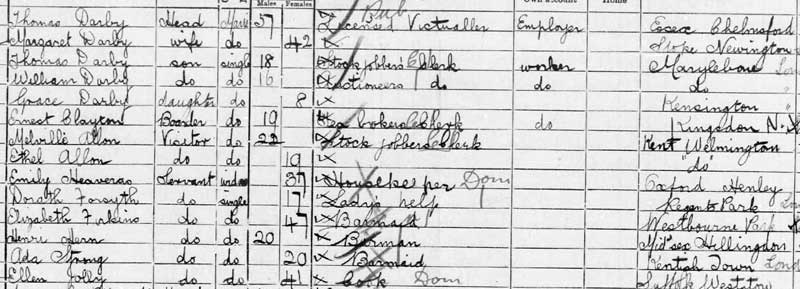 Males Females Own account Home
Thomas Darby Head Mar 57 Licensed Victualler Pub Employer Essex Chelmsford
Margaret Darby wife do 42 Stoke Newington
Thomas Darby son single 18 Stock jobbers Clerk worker Marylebone
William Darby do do 16 Auctioneers do do do
Grace Darby daughter do 8 Kensington
Ernest Clayton Boarder do 19 Brokers Clerk do Kingsdon N.
Melville Allon Visitor do 22 Stock jobbers Clerk Kent Welmington
Ethel Allon do do 19 "do"
Emily Heaveras Servant wid 37 Housekeeper Dom Oxford Henley
Dorath Forsyth do single 17 Ladys help Regents Park
Elizabeth Firkins do do 47 Barmaid Westbourne Park
Henri Hern do do 20 Barman Mid'sex Hillingdon
Ada Strong do do 20 Barmaid Kentish Town Lond
Ellen Jolly do do 41 Cook Dom Suffolk Westow